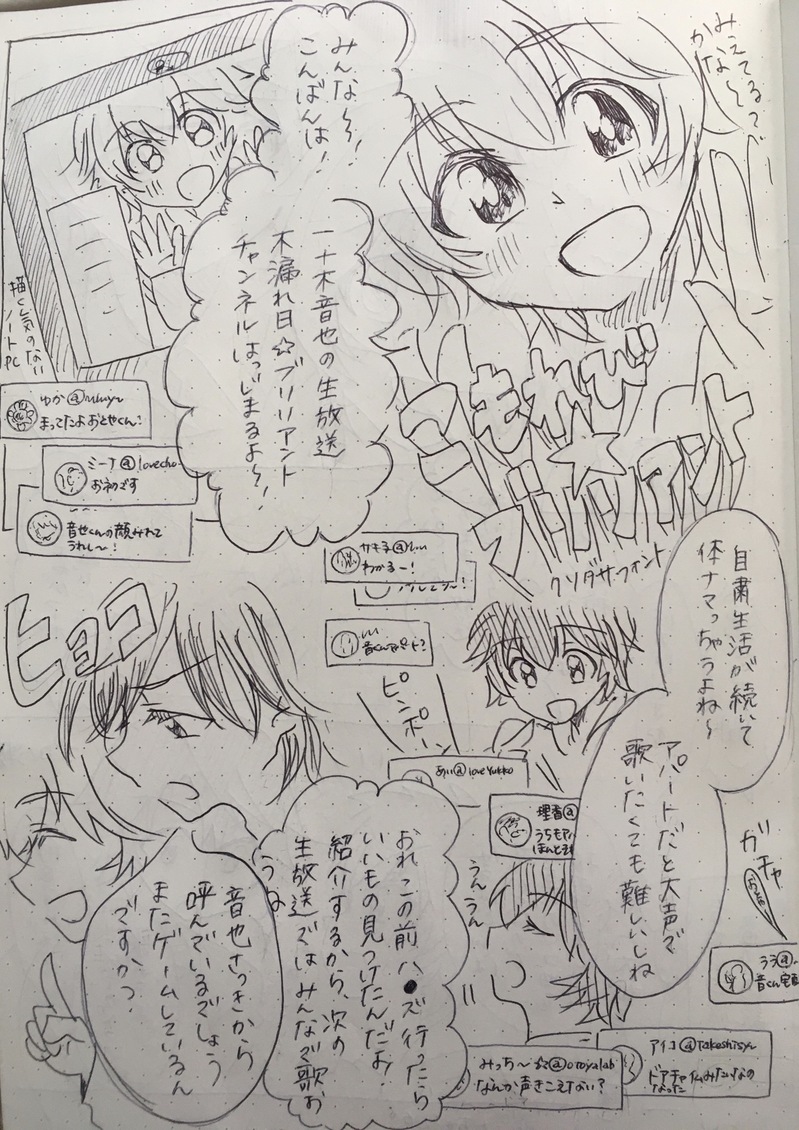 みえてるっ?
かな〜
みんな〜!
こんばんは!
一十木音也の生放送
木漏れ日☆ブリリアント
チャンネルはっじまるよ〜!
こもれび
☆
ブリリアント
クソダサフォント
描く気のない
ノートPC
ゆか@
まってたよおとやくん!
ミーナ@lovecho
お初です
音也くんの顔みれて
うれし〜!
サキ子@
わかるー!
自粛生活が続いて
体ナマっちゃうよね〜
アパートだと大声で
歌いたくても難しいしね
ピンポーン
あい@loveYukko
理香@
うちもア
ほんとそ
ガチャ
うんうん
ララ@
おれこの前ハ●ズ行ったら
いいもの見つけたんだぁ。
紹介するから、次の
生放送ではみんなで歌お
うね
ヒョコ
音也さっきから
呼んでいるでしょう
またゲームしているん
ですかっ?
みっち〜☆@otoyalab
なんか声きこえない?
アイコ@Takeshisy
ドアチャイムみたいなの
なった